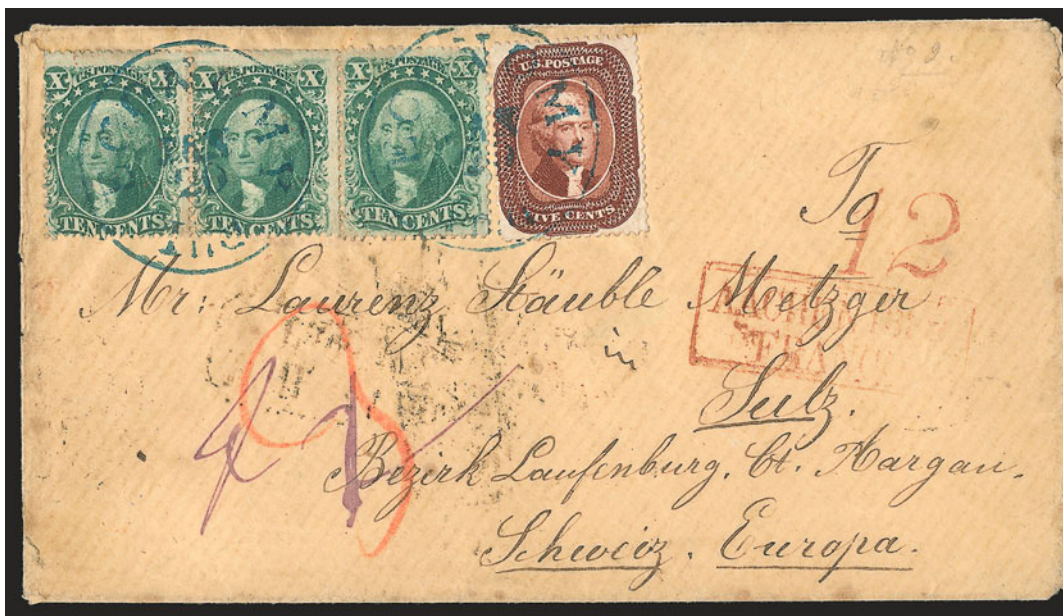 X U.S. POSTAGE X
TEN CENTS
X U.S. POSTAGE X
TEN CENTS
X U.S. POSTAGE X
TEN CENTS
U.S. POSTAGE
FIVE CENTS
20
To
12
Mr: Laurenz Stäuble Metzger
in
Sulz.
Bezirk Laufenburg. Ct. Aargau.
Schweiz. Europa.